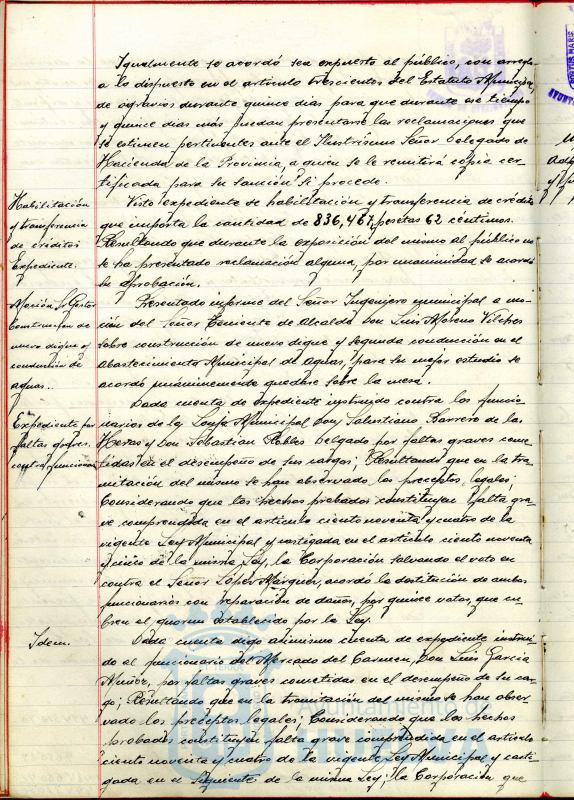 Igualmente se acordó sea expuesto al público, con arreglo
a lo dispuesto en el artículo trescientos del Estatuto Municipal,
de agravios durante quince días para que durante ese tiempo
y quince días más puedan presentarse las reclamaciones que
se estimen pertinentes ante el Ilustrísimo Señor Delegado de
Hacienda de la Provincia, a quien se le remitirá copia cer-
tificada para su sanción si procede.
Habilitación
y transferencia
de créditos
Expediente.
Visto expediente de habilitación y transferencia de crédito
que importa la cantidad de 836,467, pesetas 62 céntimos.
Resultando que durante la exposición del mismo al público no
se ha presentado reclamación alguna, por unanimidad se acordó
su aprobación.
Moción Sr Gestor
construcción de
nuevo dique y
conducción de
aguas.
Presentado informe del Señor Ingeniero municipal a mo-
ción del Señor Teniente de Alcalde Don Luis Moreno Vilches
sobre construcción de nuevo dique y segunda conducción en el
abastecimiento Municipal de Aguas, para su mejor estudio se
acordó unánimemente quedase sobre la mesa.
Expediente por
faltas graves
contra funcionarios
Dada cuenta de expediente instruido contra los funcio-
narios de la Lonja Municipal Don Salustiano Barrero de las
Heras y Don Sebastian Robles Delgado por faltas graves come-
tidas en el desempeño de sus cargos; Resultando que en la tra-
mitación del mismo se han observado los preceptos legales;
Considerando que los hechos probados constituyen falta gra-
ve comprendida en el artículo ciento noventa y cuatro de la
vigente Ley Municipal y castigada en el artículo ciento noventa
y cinco de la misma Ley, la Corporación salvando el voto en
contra el Señor López Márquez, acordó la destitución de ambos
funcionarios con reparación de daños, por quince votos, que cu-
bren el quorum establecido por la Ley.
Idem.
Dada cuenta digo asimismo cuenta de expediente instrui-
do al funcionario del Mercado del Carmen, Don Luis García
Muñoz, por faltas graves cometidas en el desempeño de su car-
go; Resultando que en la tramitación del mismo se han obser-
vado los preceptos legales; Considerando que los hechos
probados constituyen falta grave comprendida en el artículo
ciento noventa y cuatro de la vigente Ley Municipal y casti-
gada en el siguiente de la misma Ley; la Corporación que
Ayuntamiento de